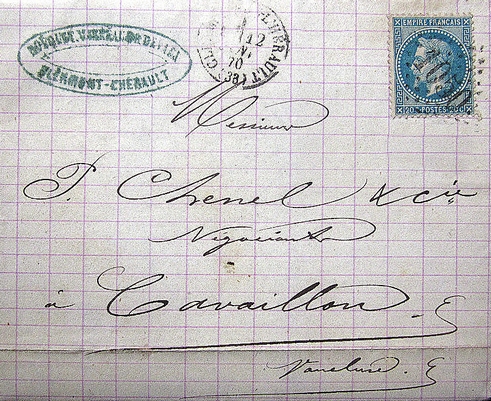 CLERMONT-L'HÉRAULT
L'HÉRAULT
12
70
(33)
EMPIRE FRANÇAIS
20c POSTES 20c
Messieurs
P. Chenel & cie
Négociants
à Cavaillon
Vaucluse